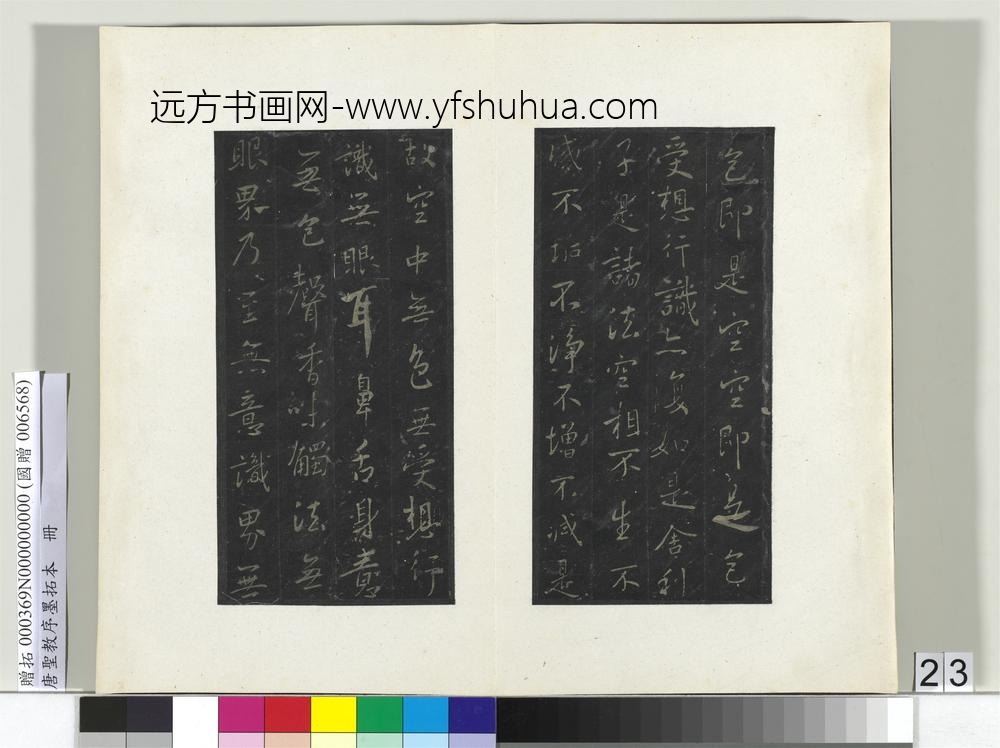 远方书画网-www.yfshuhua.com
色即是空空即是色
受想行識亦復如是舍利
子是諸法空相不生不
滅不垢不淨不增不減是
故空中無色無受想行
識無眼耳鼻舌身意
無色聲香味觸法無
眼界乃至無意識界無
贈拓 000369N000000000 (國贈 006568)
唐聖教序墨拓本 冊
23